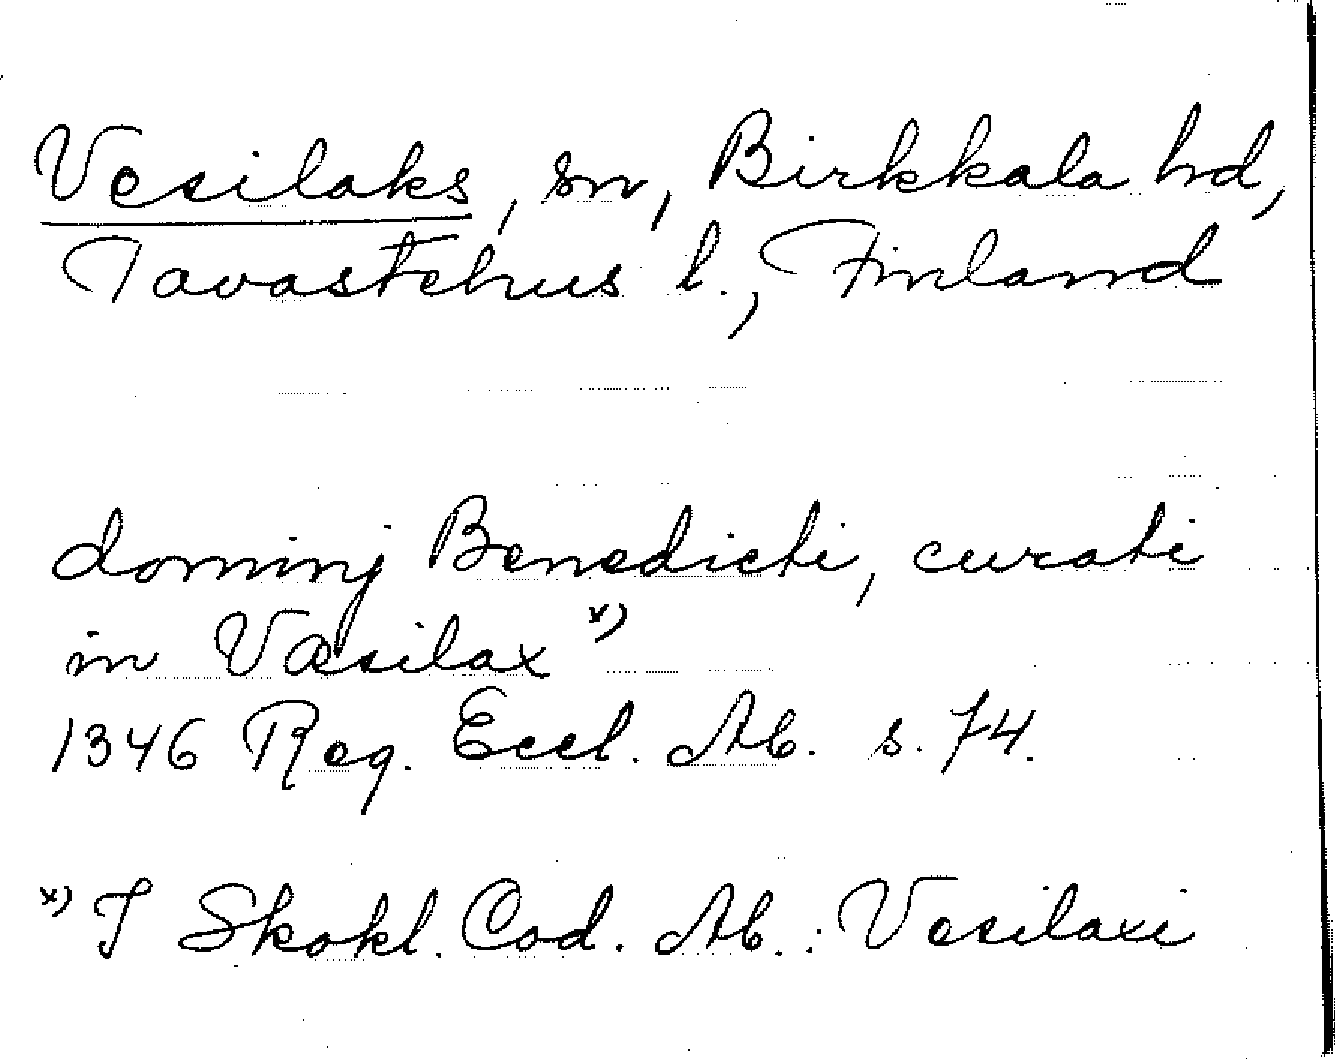 Vesilaks, sn, Birkkala hd,
Tavastehus l., Finland
dominj Benedicti, curati
in Væsilax x)
1346 Reg. Eccl. Ab. s. 74.
x) I Skokl. Cod. Ab.: Vesilaxi